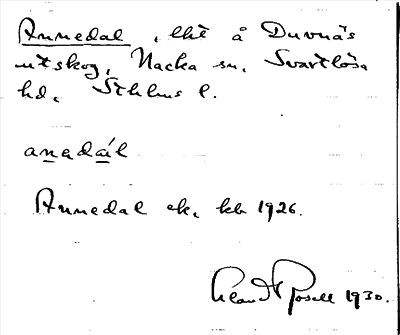 Annedal, lht å Duvnäs
utskog, Nacka sn, Svartlösa
hd, Sthlms l.
anedál
Annedal ek. kb 1926.
Rosell 1930.